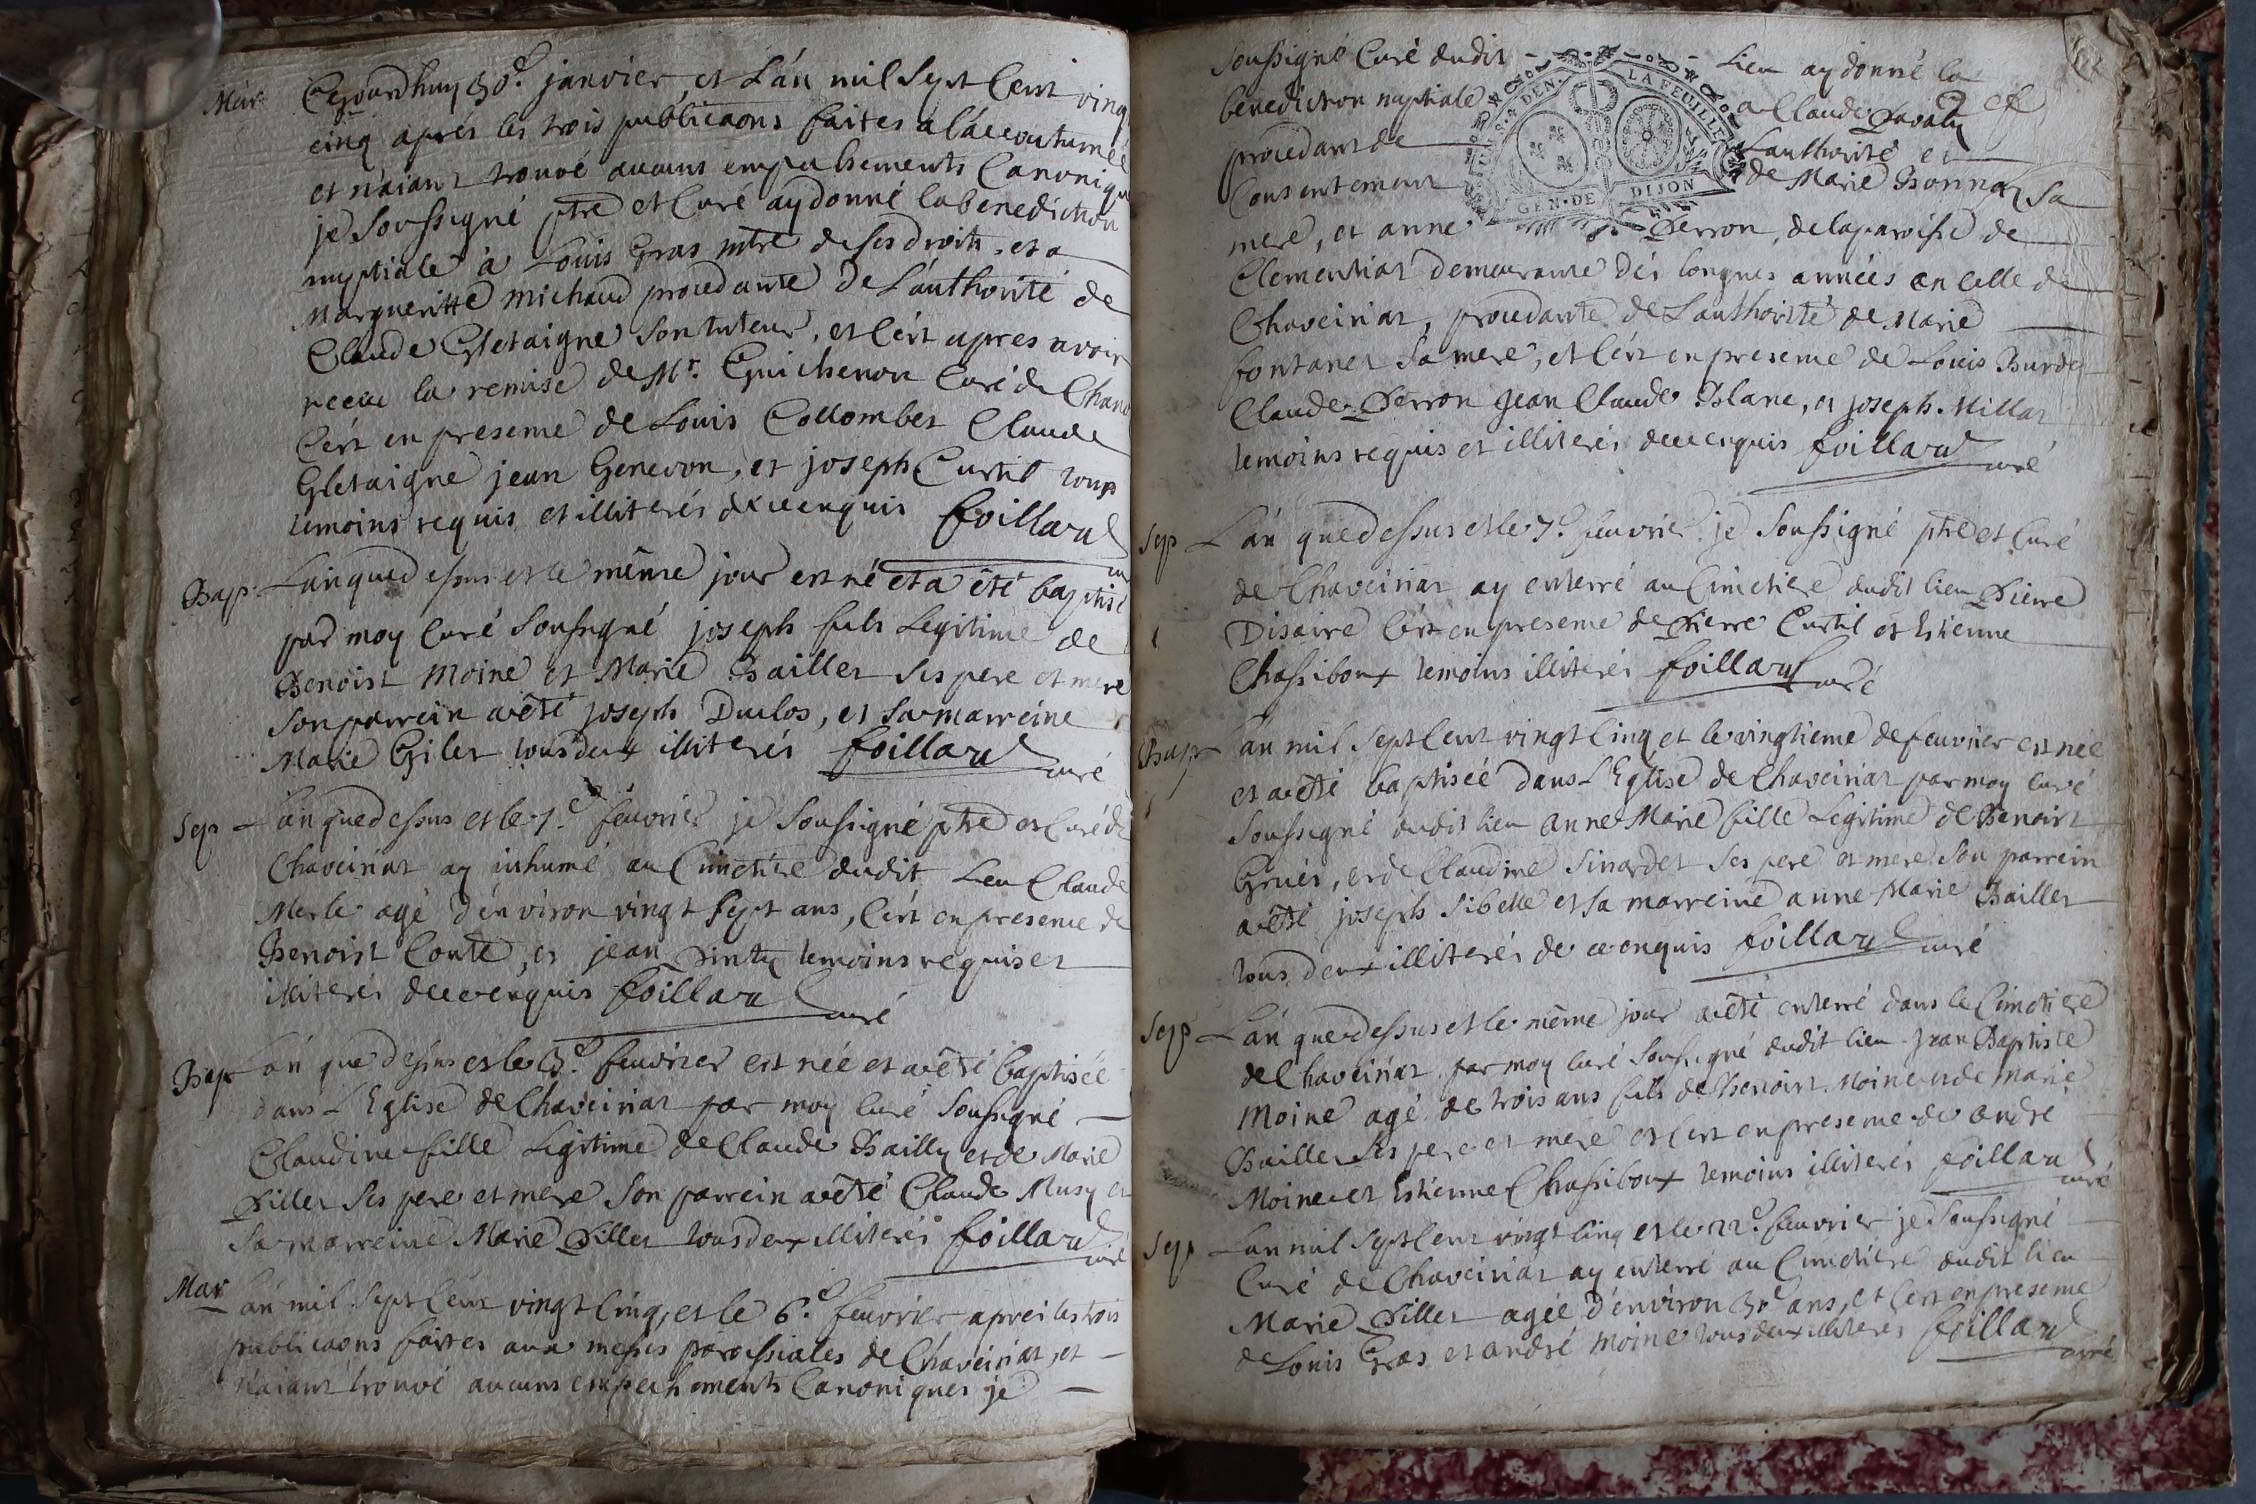 Mar. Cejourdhuy 30e. janvier, et L'án mil Sept Cent vingt
cinq aprés les trois publicaons faites a l'accoutumée
et n'aiant trouvé aucuns empechements Canoniques
je Soussigné ptre et Curé ay donné la benediction
nuptiale à Louis Gras mtre de ses droits, et a
Margueritte Michaud procedante de L'authorité de
Claude Gletaigne son tuteur, et C'ért apres avoir
receu la remise de Mr. Guichenon Curé de
C'ért en presence de Louis Collombet Claude
Gletaigne jean Genevon, et joseph Curtil tous
temoins requis et illiterés de ce enquis foillard
curé
Bap. L'an que dessus et le même jour est né et a été baptisé
par moy Curé Soussigné joseph fils Legitime de
Benoist Moine et Marie Baillet ses pere et mere
Son parrein a été joseph Duclos, et sa marreine
Marie Gilet tous deux illiterés foillard
curé
Sep. L'an que dessus et le 7.e feuvrier je Soussigné ptre et Curé de
Chaveiriat ay inhumé au Cimetiere dudit Lieu Claude
Merle agé d'environ vingt sept ans, C'ért en presence de
Benoist Conte, et jean temoins requis et
illiterés de ce enquis foillard
curé
Bap. L'án que dessus et le 3.e feuvrier est née et a été baptisée
dans L'Eglise de Chaveiriat par moy Curé Soussigné
Claudine fille Legitime de Claude Bailly et de Marie
Pillet ses pere et mere Son parrein a été Claude Musy et
sa marreine Marie Pillet tous deux illiterés foillard
curé
Mar. L'án mil Sept Cent vingt Cinq, et le 6.e feuvrier aprés les trois
publicaons faites aux messes paroissiales de Chaveiriat, et
n'aiant trouvé aucuns empechements Canoniques je
Soussigné Curé dudit Lieu ay donné la
benediction nuptiale a Claude
procedant de L'authorité et
Consentement de Marie Bonnat Sa
mere, et anne Perron, de la paroisse de
GEN. DE DIJON
LA FEUILLE
Clementiat demeurante dés longues années en celle de
Chaveiriat, procedante de L'authorité de Marie
fontanet Sa mere, et C'ért en presence de Louis Burdet
Claude Perron jean Claude Blanc, et joseph Millat
temoins requis et illiterés de ce enquis foillard
curé
Sep. L'án que dessus et le 7.e feuvrier je Soussigné ptre et Curé
de Chaveiriat ay enterré au Cimetiere dudit lieu Pierre
Disaire C'ért en presence de Pierre Curtil et Estienne
Chassiboux temoins illiterés foillard
curé
Bap. L'án mil Sept Cent vingt Cinq et le vingtieme de feuvrier est née
et a été baptisée dans L'Eglise de Chaveiriat par moy Curé
Soussigné dudit lieu anne Marie fille Legitime de Benoist
Grués, et de Claudine Sinardet ses pere et mere Son parrein
a été joseph Sibelle et sa marreine anne Marie Baillet
tous deux illiterés de ce enquis foillard curé
Sep. L'án que dessus et le même jour a été enterré dans le Cimetiere
de Chaveiriat par moy Curé Soussigné dudit lieu jean Baptiste
Moine agé de trois ans fils de Benoist Moine et de Marie
Baillet ses pere et mere et C'ert en presence de andré
Moine et Estienne Chassiboux temoins illiterés foillard
curé
Sep. L'an mil Sept Cent vingt Cinq et le 22.e feuvrier je Soussigné
Curé de Chaveiriat ay enterré au Cimetiere dudit lieu
Marie Pillet agée d'environ ans, et C'ert en presence
de Louis Gras et andré Moine tous deux illiterés foillard
curé